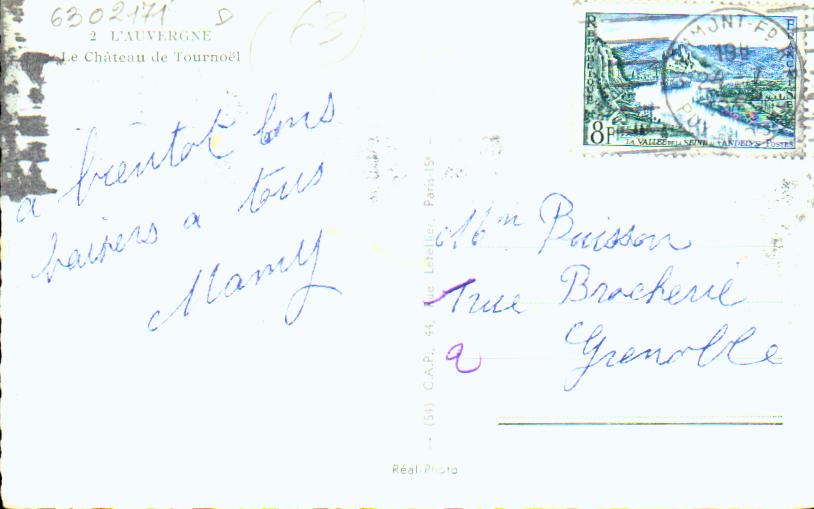 6302171 D
63
2 L'AUVERGNE
Le Château de Tournoël
RÉPUBLIQUE FRANÇAISE
8F
LA VALLÉE DE LA SEINE AUX ANDELYS POSTES
MONT-FD
19H
PUY
a bientot bons
baisers a tous
Mamy
Mr Buisson
1 rue Brocherie
a Grenoble
(54) C.A.P., 44, Rue Letellier, Paris-15e
Réal-Photo